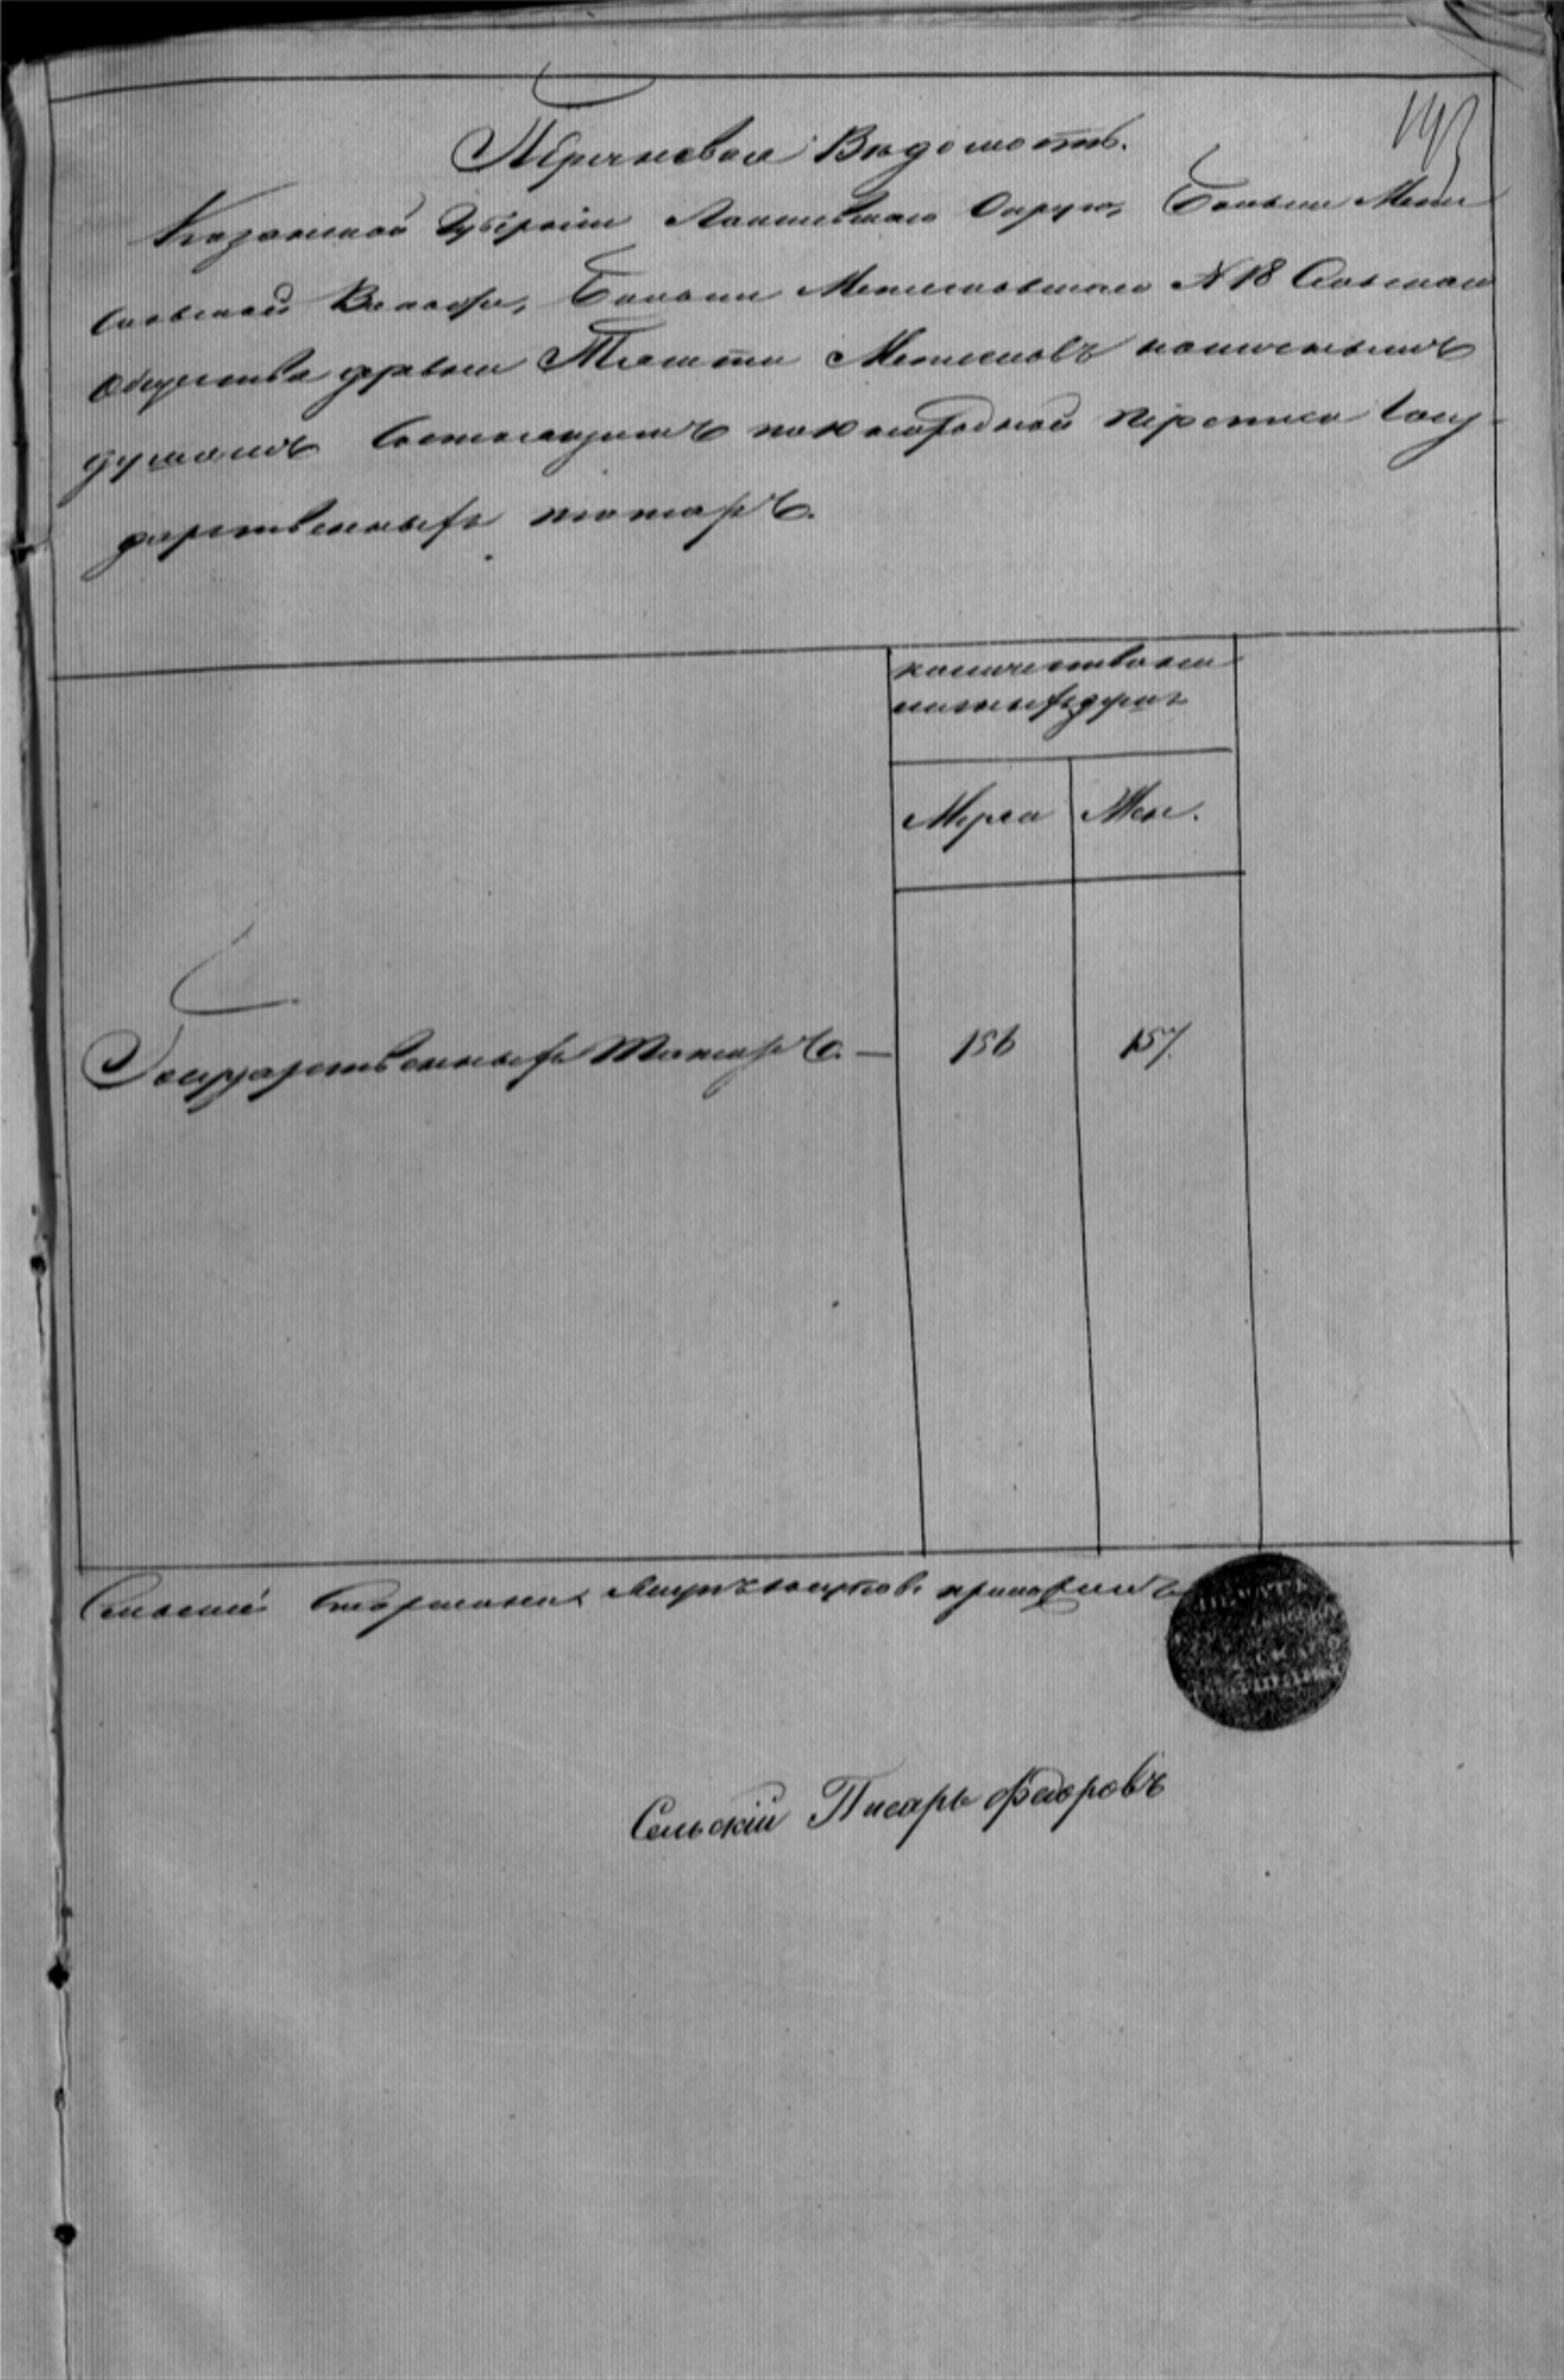 193
Перечневая Вѣдомость.
Казанской Губерніи Лаишевскаго Округа, Больше Мете
сковской Волости, Больше Метесковскаго N 18 Сельскаго
Общества деревни Метесковъ наличнымъ
душамъ Состоящимъ по 10 народной переписи Госу-
дарственныхъ татаръ.
количество на
личныхъ душъ
Муже Жен.
Государственныхъ Татаръ. — 156 157
Сельскій Старшина приложилъ
Сельскій Писарь Федоровъ